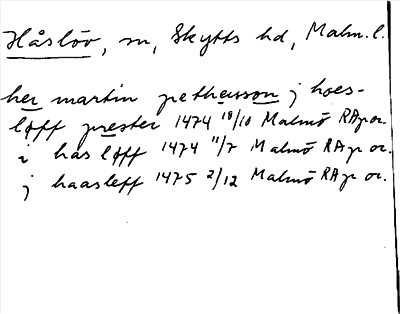 Håslöv, sn, Skytts hd, Malm. l.
her martin pethersson j hoes-
løff prester 1474 18/10 Malmö RAp or.
i has løff 1474 11/7 Malmö RAp or.
j haasleff 1475 2/12 Malmö RAp or.